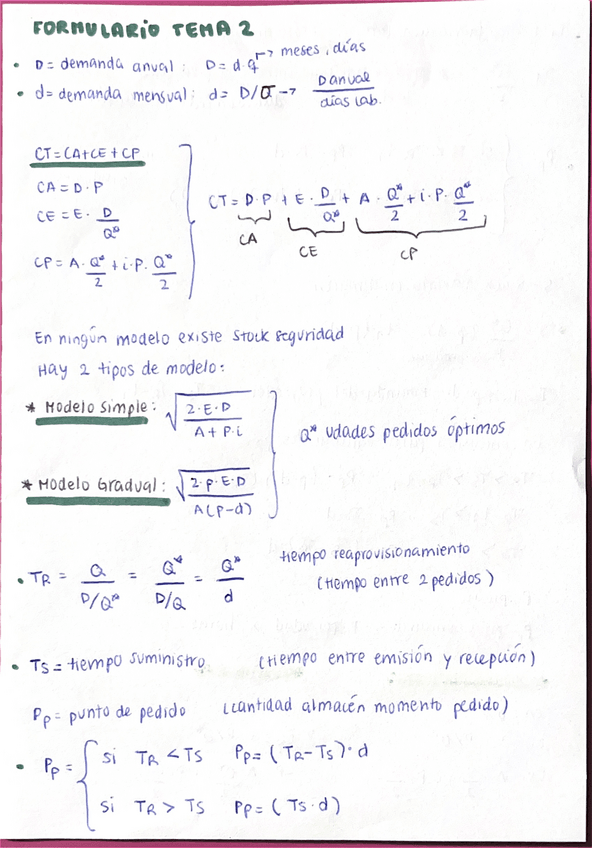 FORMULARIO TEMA 2
• D = demanda anual: D = d·q → meses, días
• d = demanda mensual: d = D/q → D anual / días lab.
CT = CA+CE+CP
CA = D·P
CE = E· D/Q*
CP = A· Q*/2 + i·P· Q*/2
CT = D·P + E· D/Q* + A· Q*/2 + i·P· Q*/2
CA CE CP
En ningún modelo existe stock seguridad
Hay 2 tipos de modelo:
* Modelo simple: √(2·E·D / A+P·i)
Q* udades pedidos óptimos
* Modelo Gradual: √(2·P·E·D / A(P-d))
• TR = Q / D/Q* = Q* / D/Q = Q*/d tiempo reaprovisionamiento
(tiempo entre 2 pedidos)
• Ts = tiempo suministro (tiempo entre emisión y recepción)
Pp = punto de pedido (cantidad almacén momento pedido)
• Pp = { si TR < TS Pp = (TR-TS)·d
si TR > TS Pp = (TS·d)